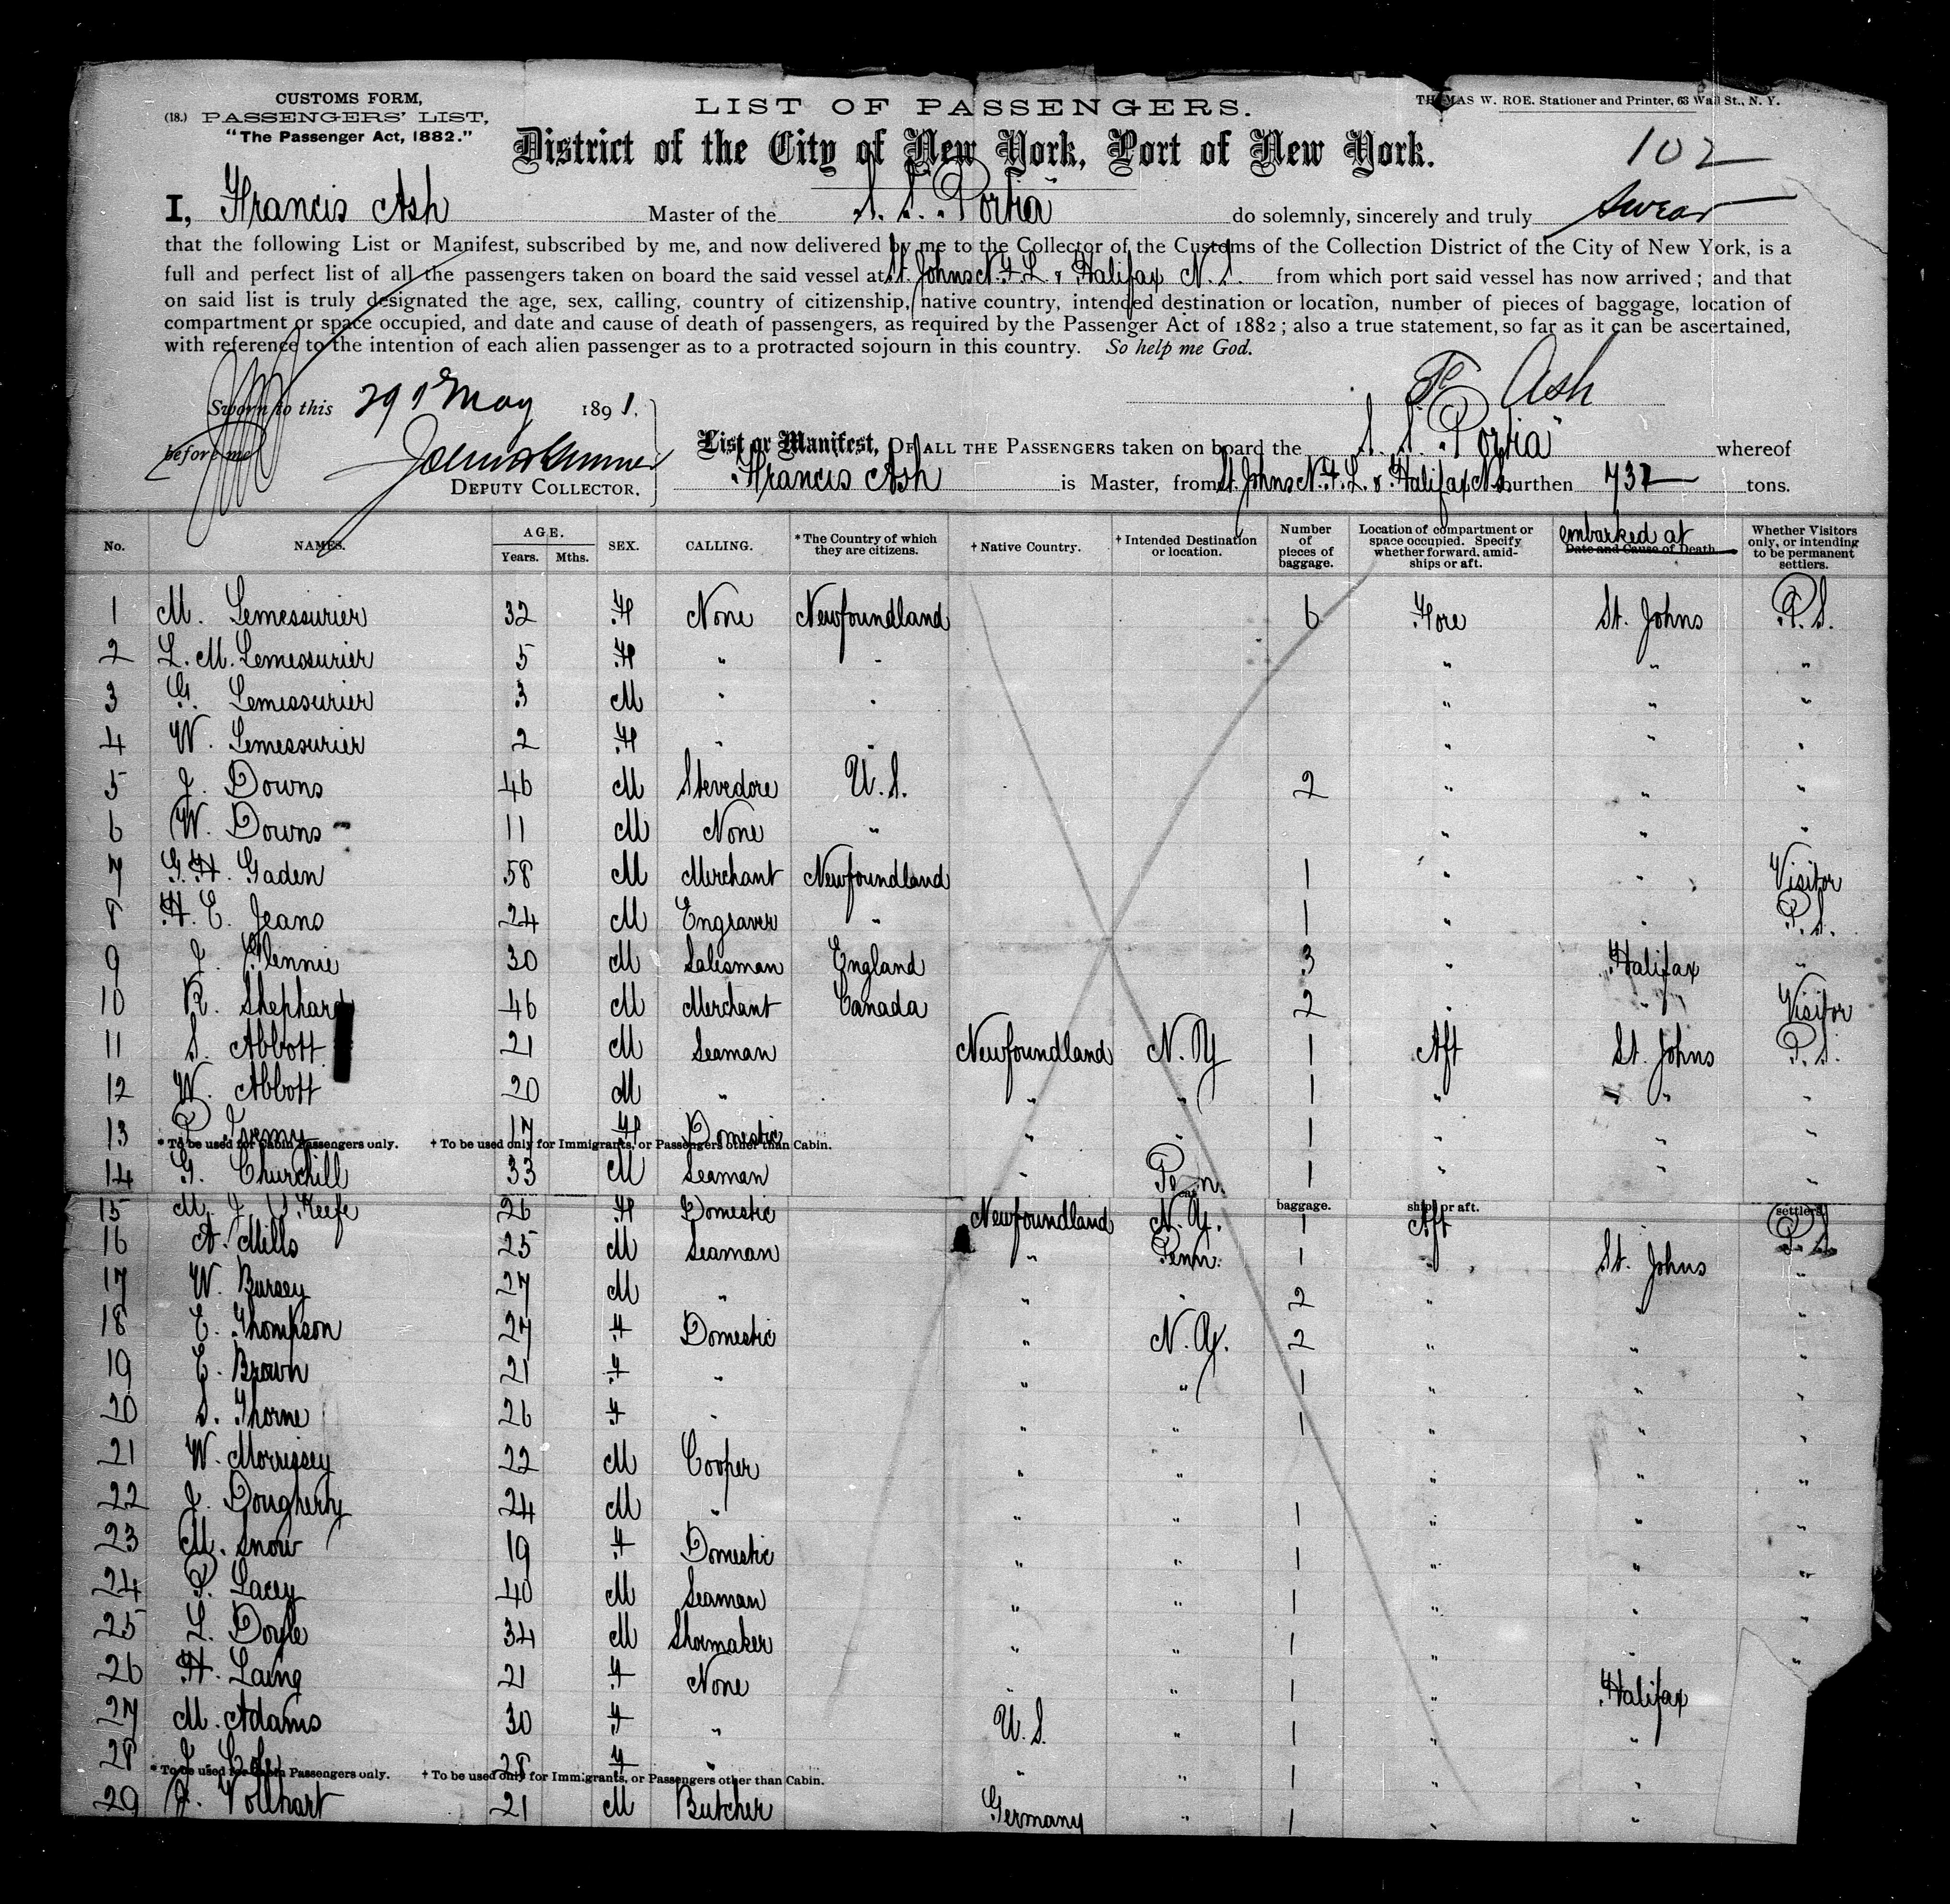 CUSTOMS FORM,
(18.) PASSENGERS' LIST,
"The Passenger Act, 1882."
LIST OF PASSENGERS.
THOMAS W. ROE. Stationer and Printer, 63 Wall St., N. Y.
District of the City of New York, Port of New York.
102
I, Francis Ash Master of the S. S. "Portia" do solemnly, sincerely and truly swear
that the following List or Manifest, subscribed by me, and now delivered by me to the Collector of the Customs of the Collection District of the City of New York, is a
full and perfect list of all the passengers taken on board the said vessel at St. Johns N.F.L. & Halifax N.S. from which port said vessel has now arrived; and that
on said list is truly designated the age, sex, calling, country of citizenship, native country, intended destination or location, number of pieces of baggage, location of
compartment or space occupied, and date and cause of death of passengers, as required by the Passenger Act of 1882; also a true statement, so far as it can be ascertained,
with reference to the intention of each alien passenger as to a protracted sojourn in this country. So help me God.
F. Ash
Sworn to this 29 May 1891.
before me
DEPUTY COLLECTOR.
List or Manifest, OF ALL THE PASSENGERS taken on board the S. S. "Portia" whereof
Francis Ash is Master, from St. Johns N.F.L. & Halifax N.S. burthen 732 tons.
No. NAMES. AGE. Years. Mths. SEX. CALLING. * The Country of which they are citizens. † Native Country. † Intended Destination or location. Number of pieces of baggage. Location of compartment or space occupied. Specify whether forward, amidships or aft. embarked at Date and Cause of Death. Whether Visitors only, or intending to be permanent settlers.
1 M. Lemessurier 32 F None Newfoundland 6 Fore St. Johns P.S.
2 L. M. Lemessurier 5 F " " " " "
3 G. Lemessurier 3 M " " " " "
4 W. Lemessurier 2 F " " " " "
5 J. Downs 46 M Stevedore U.S. 2 " " "
6 W. Downs 11 M None " " " "
7 G.H. Gaden 58 M Merchant Newfoundland 1 " " Visitor
8 H. E. Jeans 24 M Engraver " 1 " " P.S.
9 J. Glennie 30 M Salesman England 3 " Halifax "
10 R. Shephard 46 M Merchant Canada 2 " " Visitor
11 S. Abbott 21 M Seaman Newfoundland N.Y 1 Aft St. Johns P.S.
12 W. Abbott 20 M " " " 1 " " "
13 P. 17 F Domestic " " 1 " " "
* To be used for Cabin Passengers only. † To be used only for Immigrants, or Passengers other than Cabin.
14 G. Churchill 33 M Seaman " Penn. 1 " " "
baggage. ships or aft. settlers.
15 M. J. O'Keefe 26 F Domestic Newfoundland N.Y. 1 Aft P.S.
16 A. Mills 25 M Seaman " Penn. 1 " St. Johns "
17 W. Bursey 27 M " " " 2 " " "
18 E. Thompson 27 F Domestic " N.Y. 2 " " "
19 E. Brown 21 F " " " 1 " " "
20 S. Thorne 26 F " " " 1 " " "
21 W. Morrissey 22 M Cooper " " " " "
22 J. Dougherty 24 M " " " 1 " " "
23 M. Snow 19 F Domestic " " 1 " " "
24 P. Lacey 40 M Seaman " " 1 " " "
25 L. Doyle 34 M Shoemaker " " 1 " " "
26 H. Laing 21 F None " " 1 " Halifax
27 M. Adams 30 F " U.S. " 1 " "
28 28 F " " " 1 " "
* To be used for Cabin Passengers only. † To be used only for Immigrants, or Passengers other than Cabin.
29 J. Vollhart 21 M Butcher Germany " 1 " "